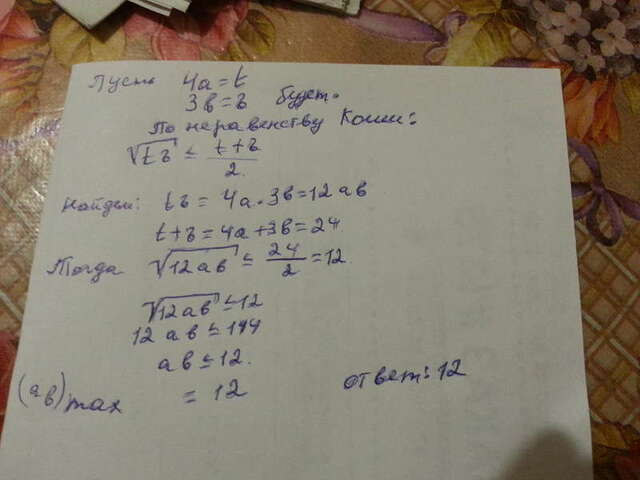 Пусть 4a=t
3b=z будет.
По неравенству Коши:
√tz ≤ t+z/2.
Найдем: tz = 4a·3b=12ab
t+z=4a+3b=24
Тогда √12ab ≤ 24/2 =12.
√12ab ≤12
12ab≤144
ab≤12.
(ab)max = 12
ответ: 12